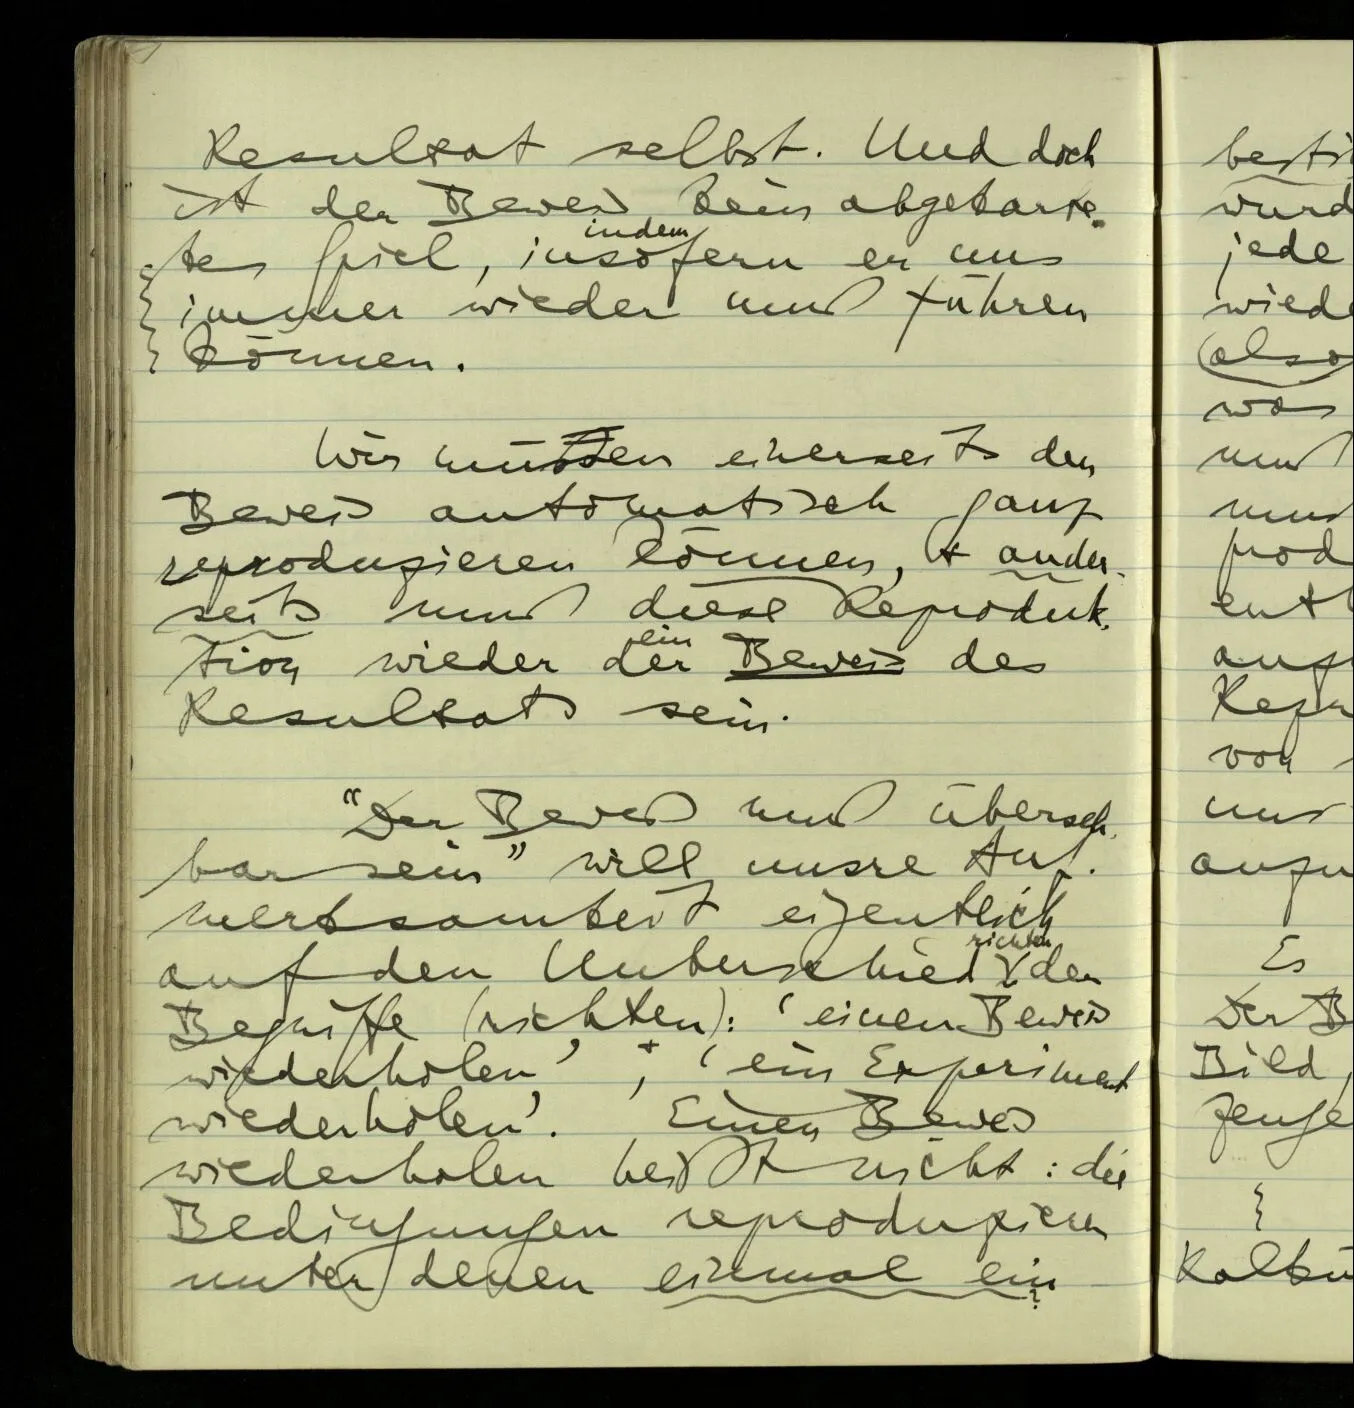 Resultat selbst. Und doch
ist der Beweis kein abgekarte-
tes Spiel, insofern er uns
indem
immer wieder muß führen
können.
Wir müssen einerseits den
Beweis automatisch ganz
reproduzieren können, & ander-
seits muß diese Reproduk-
tion wieder der Beweis des
ein
Resultats sein.
"Der Beweis muß überseh-
bar sein" will unsre Auf-
merksamkeit eigentlich
auf den Unterschied der
richten
Begriffe (richten): 'einen Beweis
wiederholen', + 'ein Experiment
wiederholen'. Einen Beweis
wiederholen heißt nicht: die
Bedingungen reproduzieren
unter denen einmal ein
wurd
jede
wiede
(also
was
muß
muß
prod
von
uns
Es
Der B
Bild,
zeuge